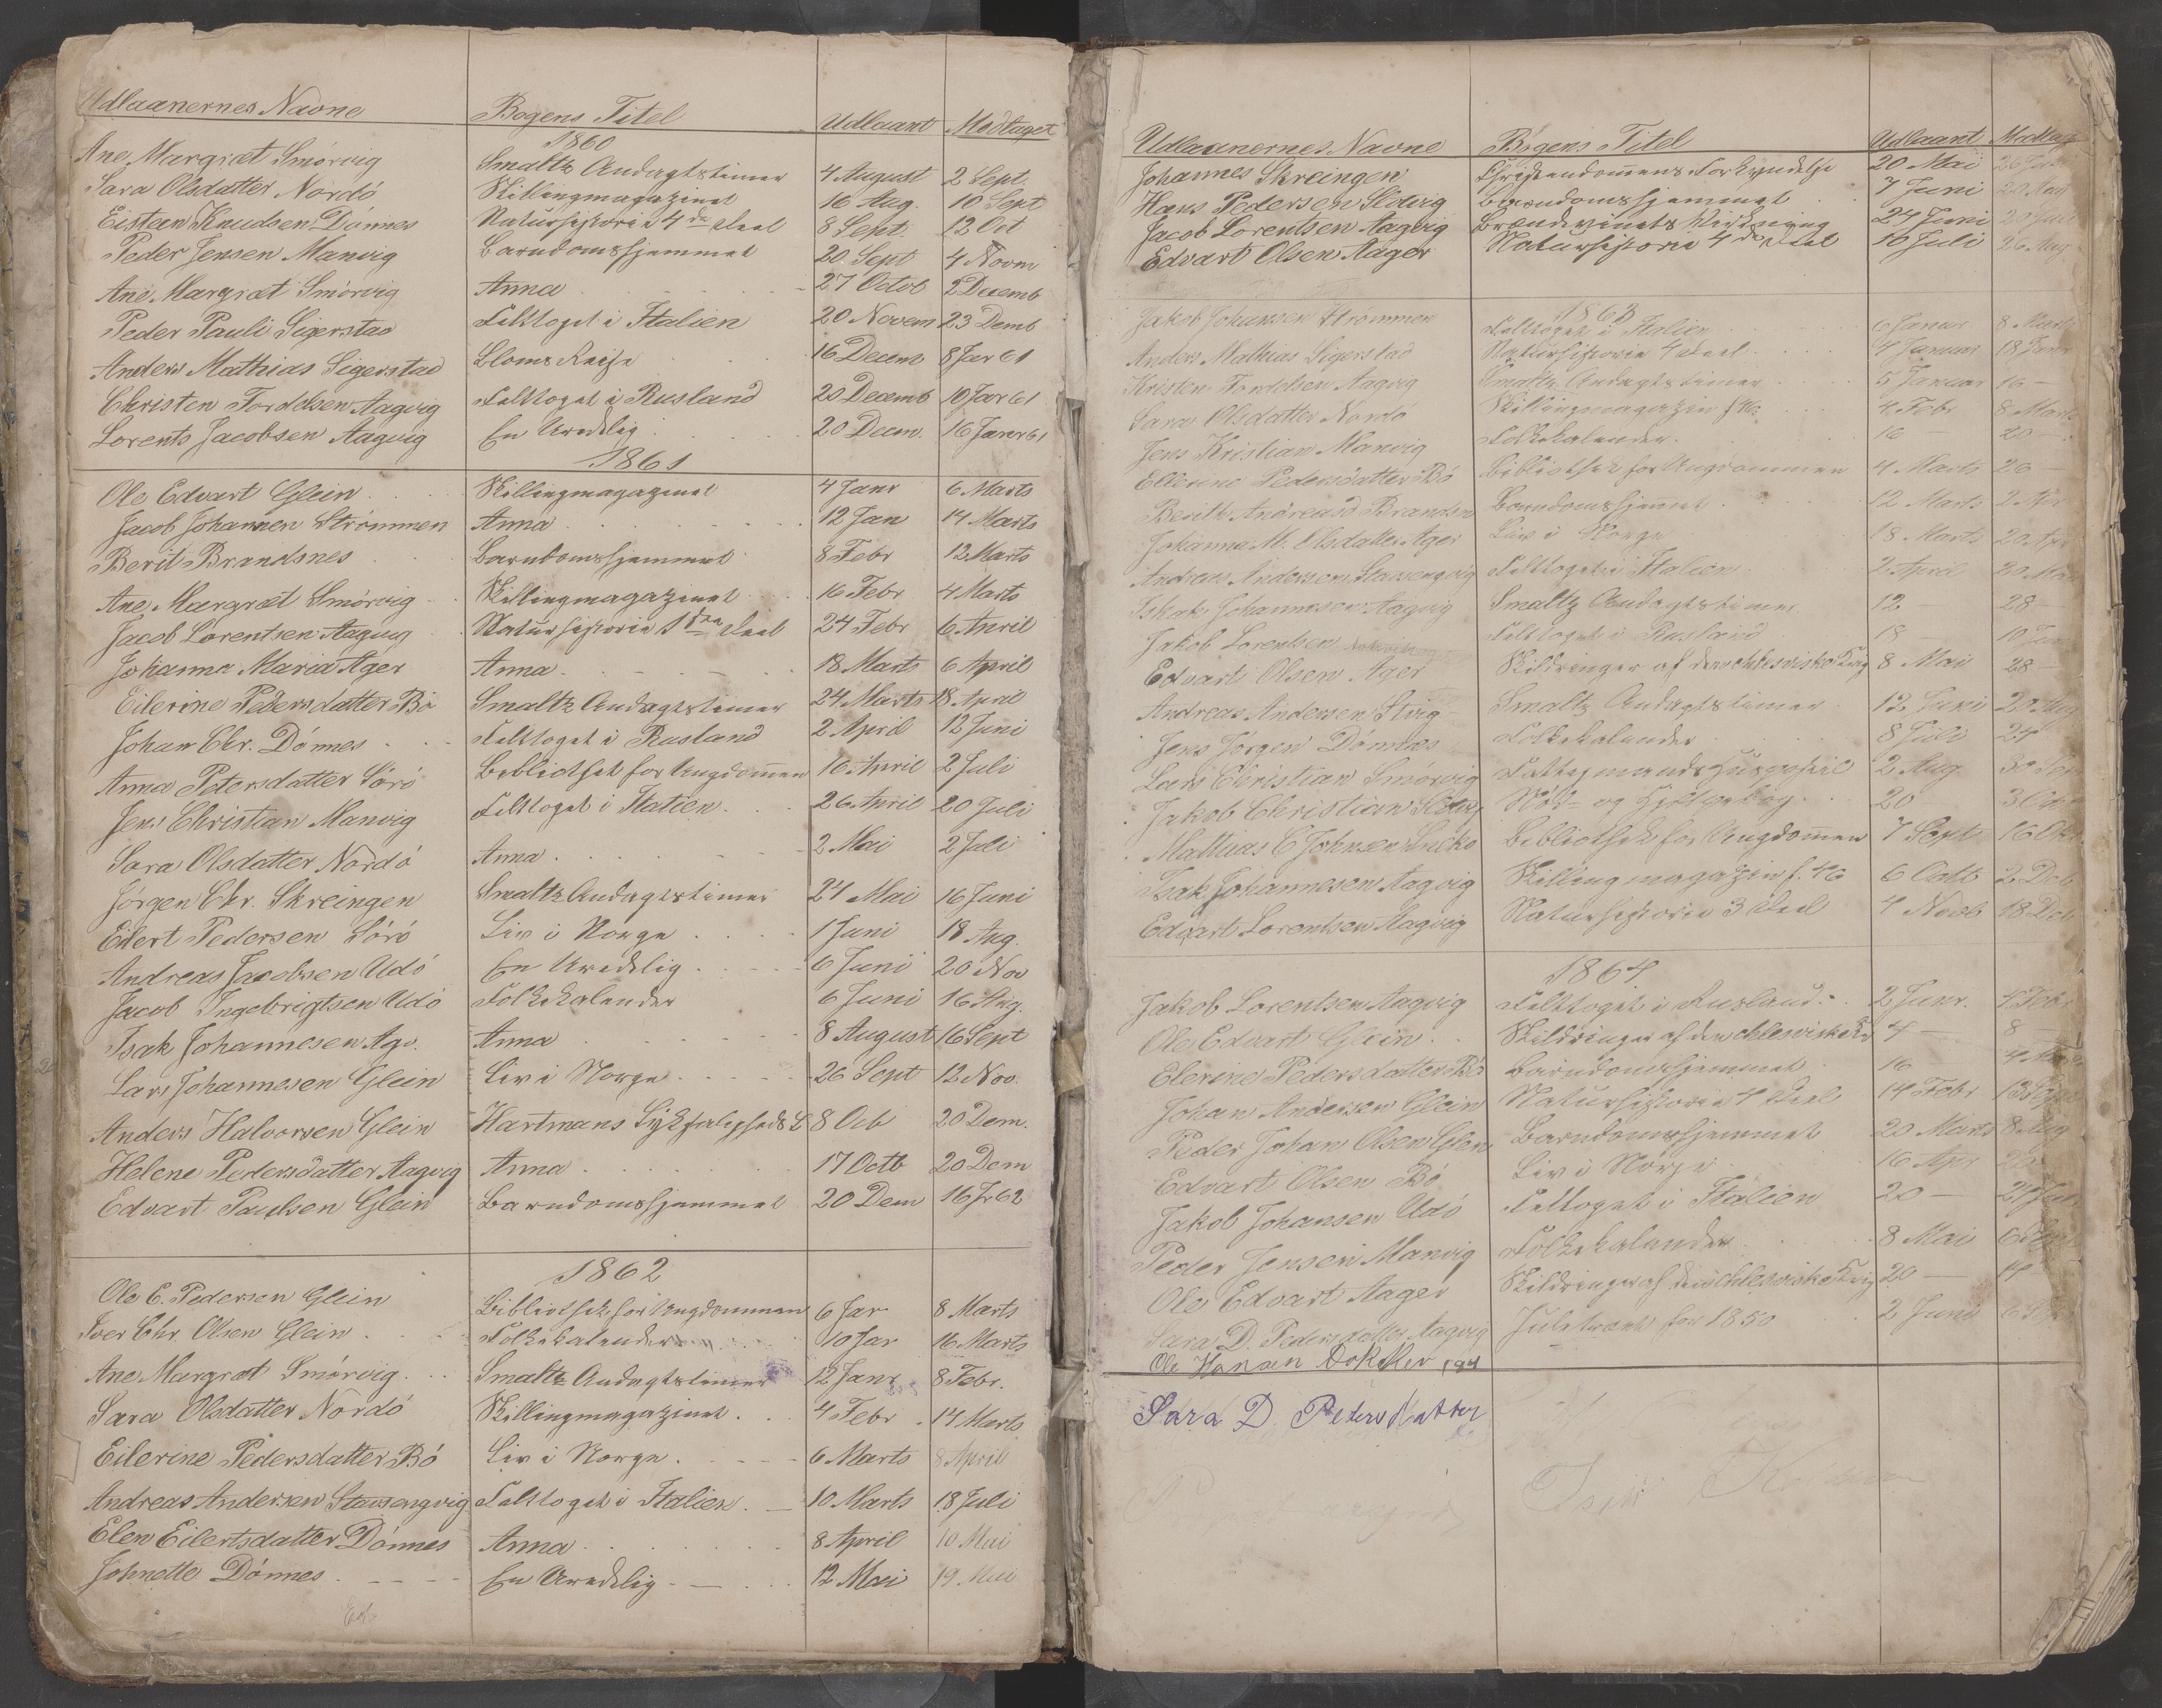 Udlaanernes Navne Bogens Titel Udlaant Modtaget
1860
Ane Margræt Smörvig Smaltz Andagtstimer 4 August 2 Sept.
Sara Olsdatter Nordö Skillingmagazinet 16 Aug. 10 Sept
Eistan Knudsen Dönnes Naturhistorie 4de Deel 8 Sept. 12 Oct
Peder Jensen Manvig Barndomshjemmet 20 Sept 4 Novm
Ane Margræt Smörvig Anna 27 Octob 2 Decemb
Peder Pauli Sigerstad Felttoget i Italien 20 Novem 23 Demb
Anders Mathias Sigerstad Bloms Reise 16 Decem 8 Jar 61
Christen Tordelsen Aagvig Felttoget i Rusland 20 Decemb 10 Jar 61
Lorents Jacobsen Aagvig En Uredelig 20 Decm. 16 Janr 61
1861
Ole Edvart Glein Skillingmagazinet 4 Janr 6 Marts
Jacob Johannen Strömmen Anna 12 Jan 14 Marts
Berit Brandsnes Barndomshjemmet 8 Febr 12 Marts
Ane Margræt Smörvig Skillingmagazinet 16 Febr 4 Marts
Jacob Lorentsen Aagvig Naturhistorie Deel 24 Febr 6 April
Johanna Maria Ager Anna 18 Marts 6 April
Eilerine Pedersdatter Bö Smaltz Andagtstimer 24 Marts 18 April
Johan Chr. Dönnes Felttoget i Rusland 2 April 12 Juni
Anna Petersdatter Sörö Bebliothek for Ungdommen 16 April 2 Juli
Jens Christian Manvig Felttoget i Italien 26 April 20 Juli
Sara Olsdatter Nordö Anna 2 Mai 2 Juli
Jörgen Chr. Skreingen Smaltz Andagtstimer 24 Mai 16 Juni
Eilert Pedersen Sörö Liv i Norge 1 Juni 18 Aug.
Andreas Jacobsen Udö En Uredelig 6 Juni 20 Nov
Jacob Ingebrigtsen Udö Folkekalender 6 Juni 16 Aug.
Isak Johannesen Agv. Anna 8 August 16 Sept
Lars Johannesen Glein Liv i Norge 26 Sept 12 Nov.
Anders Halvorsen Glein Hartmans Lyksaligheds L 8 Oct 20 Dem.
Helene Pedersdatter Aagvig Anna 17 Octb 20 Dem
Edvart Paulsen Glein Barndomshjemmet 20 Dem 16 Jr 62
1862
Ole E. Pedersen Glein Bibliothek for Ungdommen 6 Jar 8 Marts
Iver Chr Olsen Glein Folkekalender 10 Jar 16 Marts
Ane Margræt Smörvig Smaltz Andagtstimer 12 Janr 8 Febr.
Sara Olsdatter Nordö Skillingmagazinet 4 Febr 14 Marts
Eilerine Pedersdatter Bö Liv i Norge 6 Marts 8 April
Andreas Andersen Stavsengvig Felttoget i Italien 10 Marts 18 Juli
Elen Eilertsdatter Dönnes Anna 8 April 10 Mai
Johnette Dönnes En Uredelig 12 Mai 19 Mai
Udlaanernes Navne Bogens Titel Udlaant Modtag
Johannes Skreingen Christendommens Forkyndelse 20 Mai
Hans Pedersen Slotvig Barndomshjemmet 7 Juni
Jacob Lorentsen Aagvig Brændevinets Virkning 24 Juni
Edvart Olsen Aager Naturhistorie 4de Deel 16 Juli 26 Aug
1863
Jakob Johansen Strömmen Felttoget i Italien 6 Januar 8 Marts
Anders Mathias Sigerstad Naturhistorie 4 Deel 4 Januar 18 Janr
Kristen Tordelsen Aagvig Smaltz Andagtstimer 5 Januar 16 —
Sara Olsdatter Nordö Skillingmagazin f 46 4 Febr 8 Marts
Jens Kristian Manvig Folkekalender 16 20 —
Ellerine Pedersdatter Bö Bibliothek for Ungdommen 4 Marts 26
Berith Andreasd Brandsn Barndomshjemmet 12 Marts 2 Apr
Johanna M. Olsdatter Ager Liv i Norge 18 Marts 20 Apr
Andreas Andersen Stavsengvig Felttoget i Italien 2 April 20 Mai
Johannesen Aagvig Smaltz Andagtstimer 12 28
Jakob Lorentsen Felttoget i Rusland 18 — 10 Jun
Edvart Olsen Ager Skildringer af den schlesviske Krig 8 Mai 28 —
Andreas Andersen Stvig Smaltz Andagtstimer 12 Juni 20 Aug
Jens Jörgen Dönnæs Folkekalender 8 Juli 24
Lars Christian Smörvig Fattigmands Huspostil 2 Aug. 30
Jakob Christian Slotvig Nöd- og Hjelpebog 20 3 Oct
Mathias C Johnsen Bibliothek for Ungdommen 7 Sept 16 Okt
Isak Johannesen Aagvig Skilling magazin f. 46 6 Octb 2 Deb
Edvart Lorentsen Aagvig Naturhistorie 3 Deel 4 Novb 18 Deb
1864
Jakob Lorentsen Aagvig Felttoget i Rusland 2 Junr. 4 Febr
Ole Edvart Glein Skildringer af den schlesviske 4 — 8
Elerine Pedersdatter Bö Barndomshjemmet 16
Johan Andersen Glein Naturhistorie 4 Deel 14 Febr
Peder Johan Olsen Glein Barndomshjemmet 20 Marts 8 Aug
Edvart Olsen Bö Liv i Norge 16 Apr
Jakob Johansen Udö Felttoget i Italien 20 —
Peder Jensen Manvig Folkekalender 8 Mai
Ole Edvart Aager Skildringer af den schlesviske Krig 20 —
Sara D. Pedersdatter Aagvig Juletræet for 1850 2 Juni
Ole Hansen
Sara D. Petersdatter